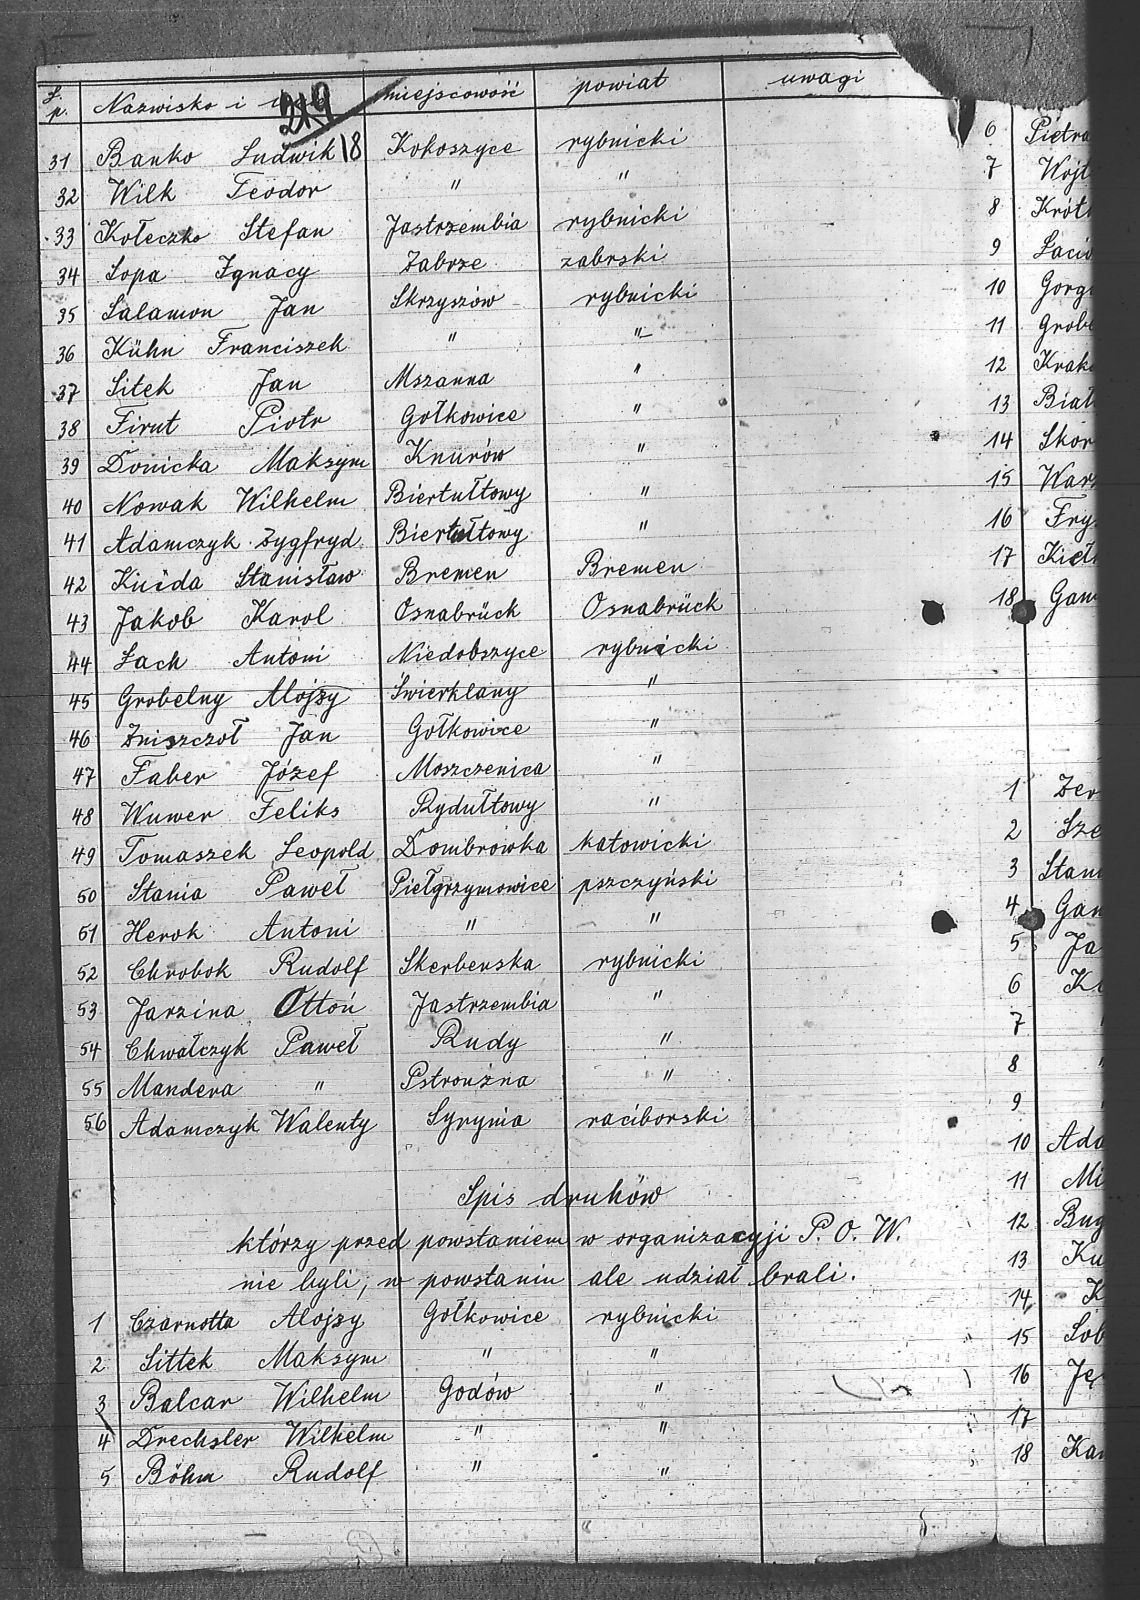 L. p. Nazwisko i miejscowość powiat uwagi
219
31 Banko Ludwik 18 Kokoszyce rybnicki
32 Wilk Teodor " "
33 Kołeczko Stefan Jastrzembia rybnicki
34 Sopa Ignacy Zabrze zabrski
35 Salamon Jan Skrzyszów rybnicki
36 Kühn Franciszek " "
37 Sitek Jan Mszanna "
38 Firut Piotr Gołkowice "
39 Donicka Maksym Knurów "
40 Nowak Wilhelm Biertułtowy "
41 Adamczyk Zygfryd Biertułtowy "
42 Kuida Stanisław Bremen Bremen
43 Jakob Karol Osnabrück Osnabrück
44 Lach Antoni Niedobszyce rybnicki
45 Grobelny Alojzy Świerklany "
46 Zniszczoł Jan Gołkowice "
47 Faber Józef Moszczenica "
48 Wuwer Feliks Rydułtowy "
49 Tomaszek Leopold Dombrówka katowicki
50 Stania Paweł Piełgrzymowice pszczyński
51 Herok Antoni " "
52 Chrobok Rudolf Skerbenska rybnicki
53 Jarzina Ottoń Jastrzembia "
54 Chwałczyk Paweł Rudy "
55 Mandera " Pstroużna "
56 Adamczyk Walenty Syrynia raciborski
Spis druhów
którzy przed powstaniem w organizacyji P. O. W.
nie byli, w powstaniu ale udział brali.
1 Czarnotta Alojzy Gołkowice rybnicki
2 Sittek Maksym " "
3 Balcar Wilhelm Godów "
4 Drechsler Wilhelm " "
5 Böhm Rudolf " "
"
6 Pietra
7 Wojt
8 Krót
9 Lacio
10 Gorg
11 Grobe
12 Krak
13 Biał
14 Skor
15 War
16 Fry
17 Kieł
18 Gam
1 Zer
2 Sze
3 Stan
4 Gan
5 Ja
6 K
7
8 "
9
10 Ada
11 Mi
12 Bug
13 Ku
14 K
15 Sob
16 Ję
17
18 Kan